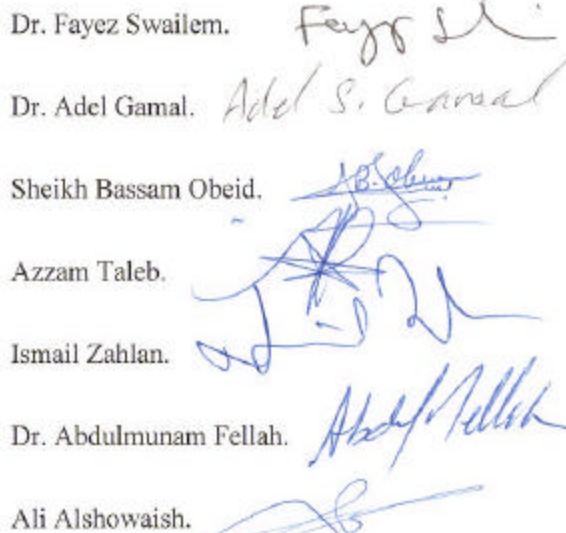 Dr. Fayez Swailem.
Dr. Adel Gamal. Adel S. Gamal
Sheikh Bassam Obeid.
Azzam Taleb.
Ismail Zahlan.
Dr. Abdulmunam Fellah.
Ali Alshowaish.